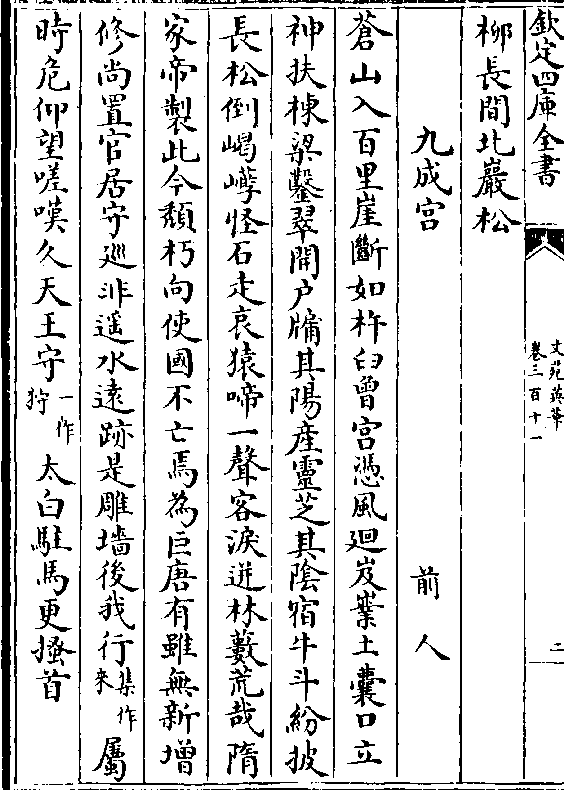 欽定四庫全書
文苑英華
卷三百十一
二
栁長間北巖松
九成宫　前人
蒼山入百里崖斷如杵臼曾宫憑風迴岌嶪土囊口立
神扶棟梁鑿翠開户牖其陽産靈芝其陰宿牛斗紛披
長松倒嵑巕怪石走哀猿啼一聲客淚迸林藪荒哉隋
家帝製此今頽朽向使國不亡焉為巨唐有雖無新增
修尚置官居守廵非遥水遠跡是雕墻後我行集作來屬
時危仰望嗟嘆久天王守一作狩太白駐馬更搔首